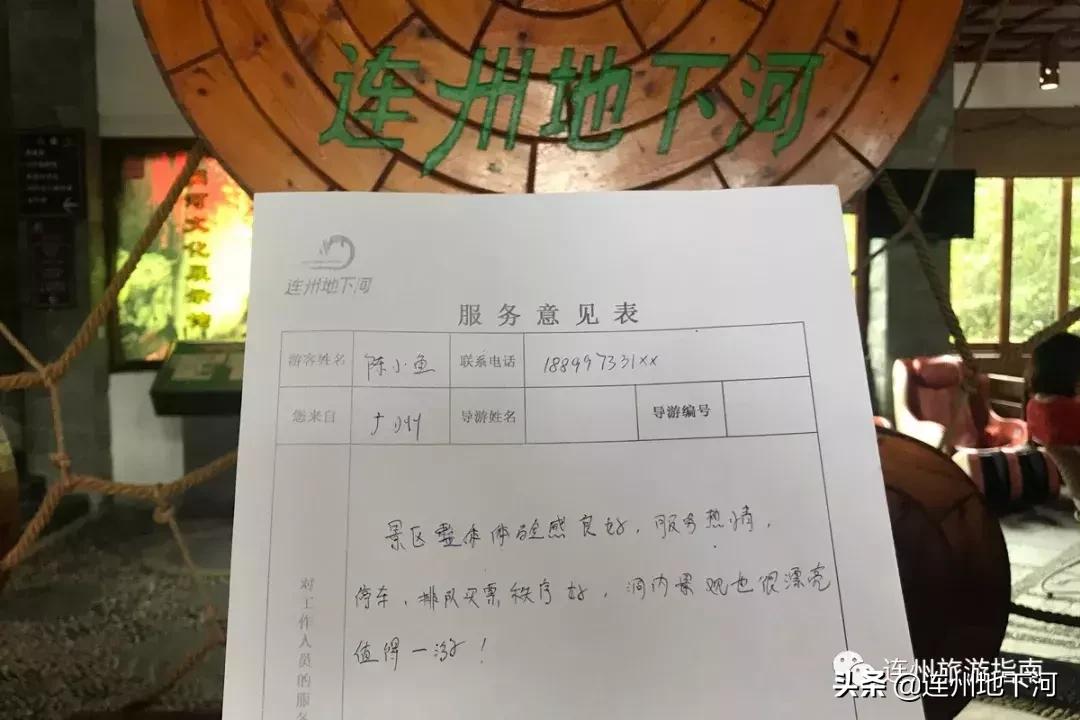 连州地下河
河文化展示
连州地下河
服务意见表
游客姓名 陈小鱼 联系电话 188997331xx
您来自 广州 导游姓名 导游编号
景区整体体验感良好，服务热情，
停车、排队买票秩序好，洞内景观也很漂亮
值得一游！
对工作人员的服务
连州旅游指南
头条 @连州地下河